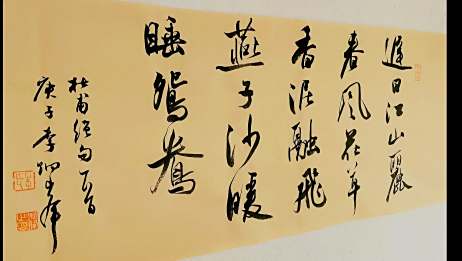 遲日江山麗
春风花草
香泥融飛
燕子沙暖
睡鴛鴦
杜甫绝句一首
庚子李